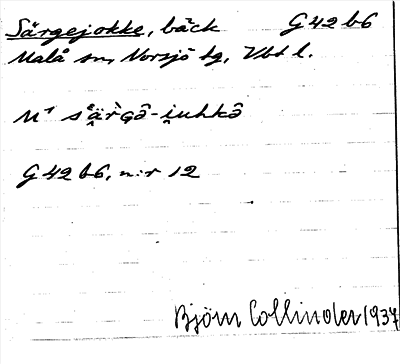 Särgejokke, bäck G 42 b6
Malå sn, Norsjö tg, Vbt l.
G 42 b6, n:r 12
Björn Collinder 1937